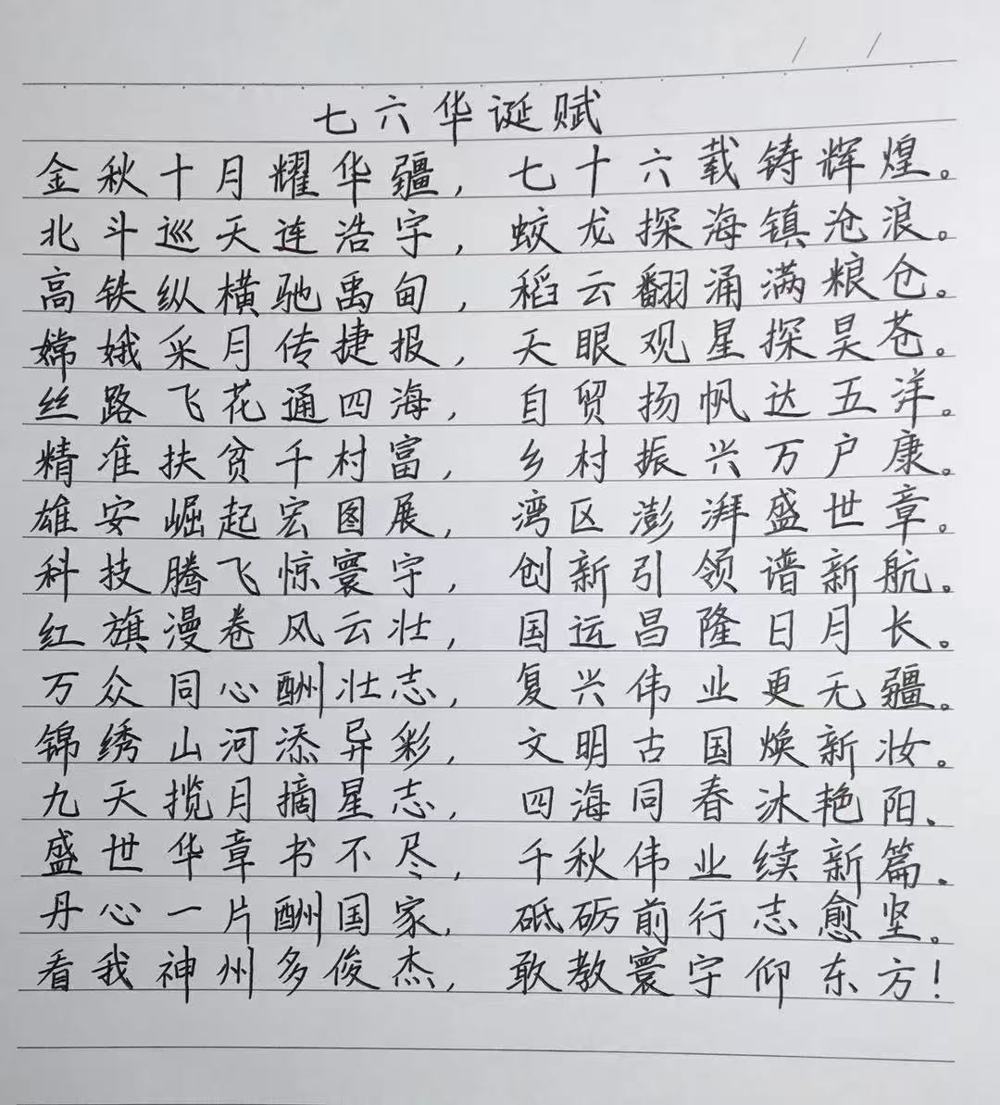 七六华诞赋
金秋十月耀华疆，七十六载铸辉煌。
北斗巡天连浩宇，蛟龙探海镇沧浪。
高铁纵横驰禹甸，稻云翻涌满粮仓。
嫦娥采月传捷报，天眼观星探昊苍。
丝路飞花通四海，自贸扬帆达五洋。
精准扶贫千村富，乡村振兴万户康。
雄安崛起宏图展，湾区澎湃盛世章。
科技腾飞惊寰宇，创新引领谱新航。
红旗漫卷风云壮，国运昌隆日月长。
万众同心酬壮志，复兴伟业更无疆。
锦绣山河添异彩，文明古国焕新妆。
九天揽月摘星志，四海同春沐艳阳。
盛世华章书不尽，千秋伟业续新篇。
丹心一片酬国家，砥砺前行志愈坚。
看我神州多俊杰，敢教寰宇仰东方！